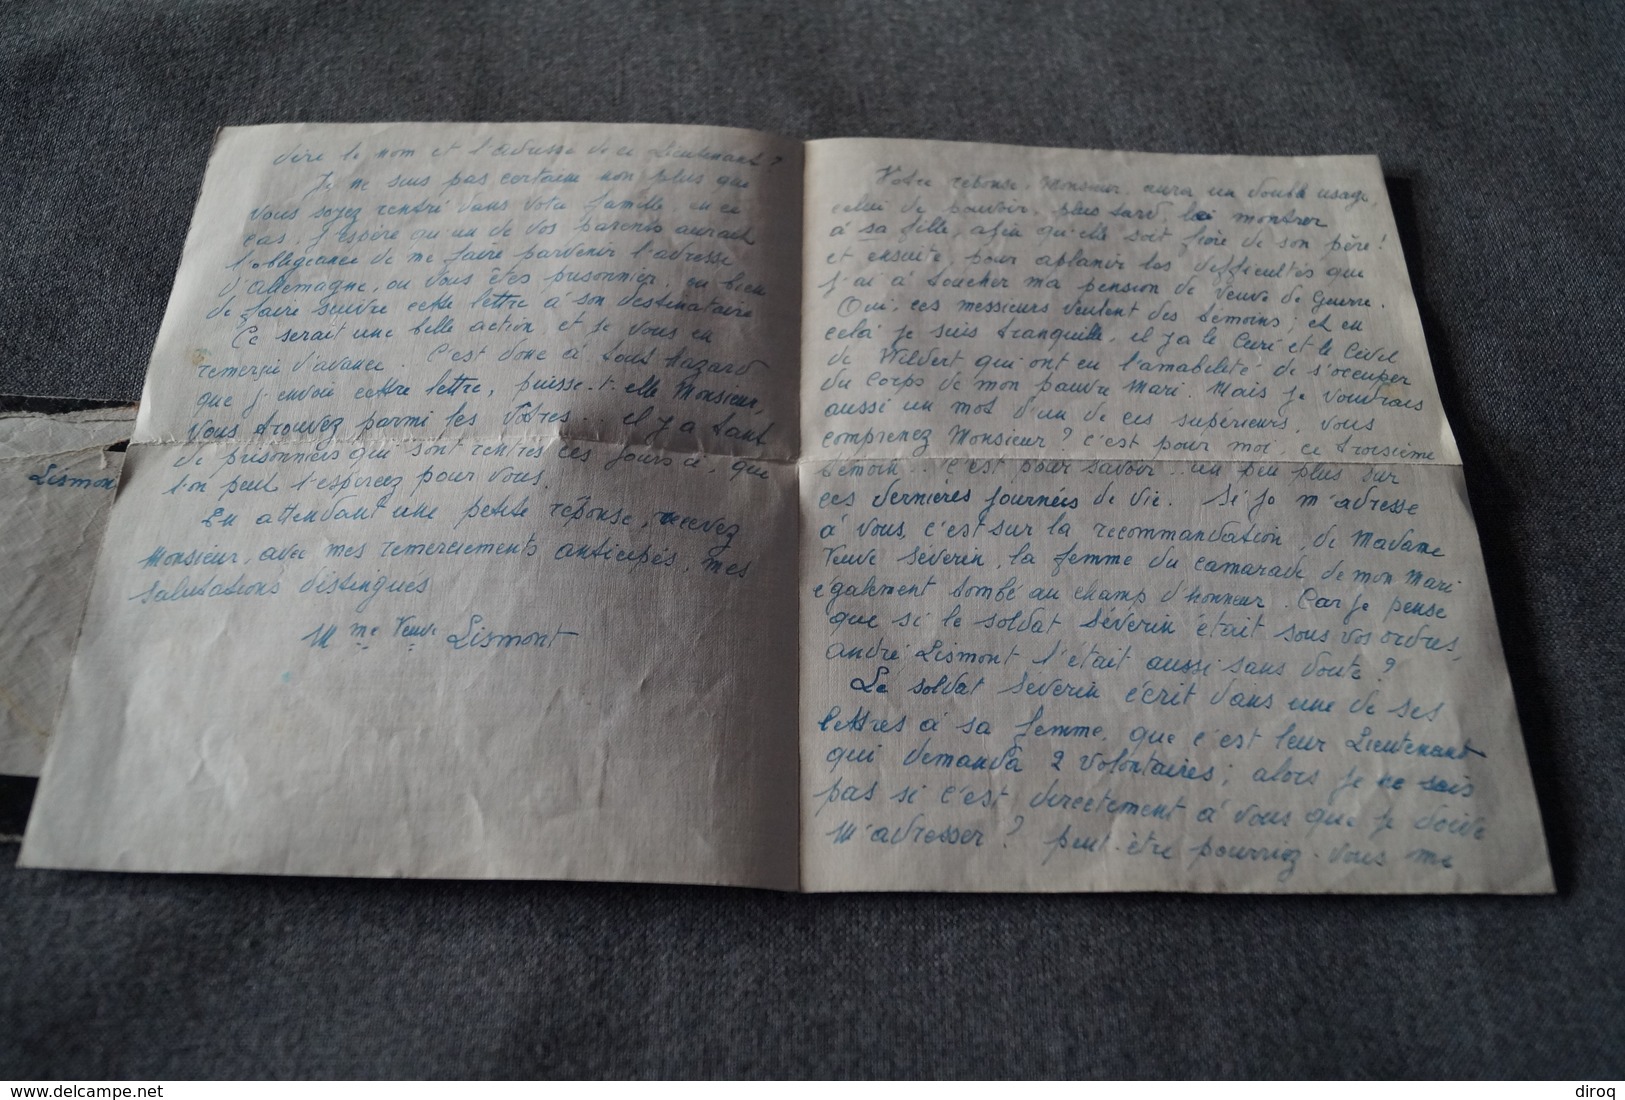 Votre réponse, Monsieur, aura un double usage,
celui de pouvoir, plus tard, la montrer
à sa fille, afin qu'elle soit fière de son père!
et ensuite, pour aplanir les difficultés que
j'ai à toucher ma pension de Veuve de Guerre.
Oui, ces messieurs veulent des témoins; et en
cela je suis tranquille, il y a le Curé et le Civil
de Wildert qui ont eu l'amabilité de s'occuper
du Corps de mon pauvre Mari. Mais je voudrais
aussi un mot d'un de ces supérieurs, vous
comprenez Monsieur? c'est pour moi, ce troisième
témoin.. c'est pour savoir.. un peu plus sur
ces dernières journées de vie. Si je m'adresse
à vous, c'est sur la recommandation, de Madame
Veuve Séverin, la femme du camarade de mon Mari
également tombé au champ d'honneur. Car je pense
que si le soldat Séverin était sous vos ordres,
andré Lismont l'était aussi sans doute?
Le soldat Séverin écrit dans une de ses
lettres à sa femme, que c'est leur Lieutenant
qui demanda 2 volontaires; alors je ne sais
pas si c'est directement à vous que je doive
m'adresser? peut-être pourriez-vous me
dire le nom et l'adresse de ce Lieutenant?
Je ne suis pas certaine non plus que
vous soyez rentré dans votre famille en ce
cas, j'espère qu'un de vos parents aurait
l'obligeance de me faire parvenir l'adresse
d'allemagne, ou vous êtes prisonnier, ou bien
de faire suivre cette lettre à son destinataire
Ce serait une belle action, et je vous en
remercie d'avance. C'est donc à tout hazard
que j'envoie cette lettre, puisse-t-elle Monsieur,
vous trouvez parmi les Vôtres... il y a tant
de prisonniers qui sont rentrés ces jours ci, que
l'on peut l'espérez pour vous.
En attendant une petite réponse, recevez
Monsieur, avec mes remerciements anticipés, mes
salutations distingués
Mme Veuve Lismont
Lismont
www.delcampe.net
diroq